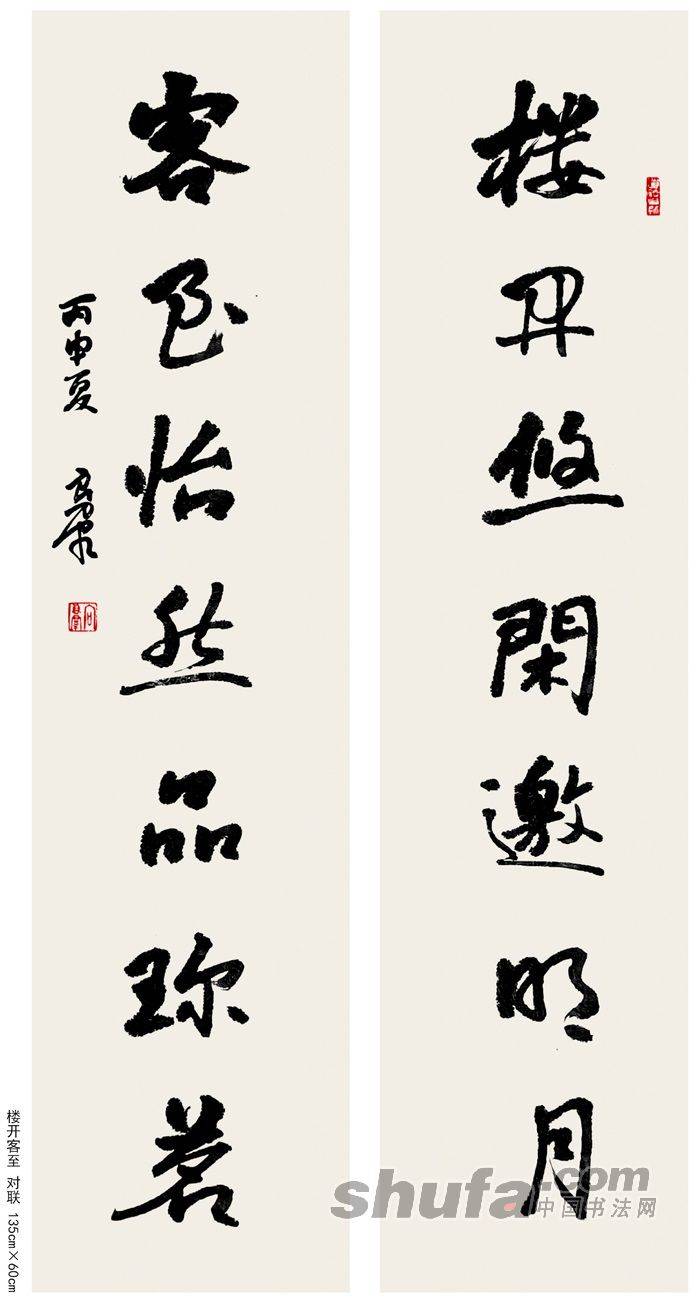 楼开悠閑邀明月
客至怡然品珍茗
丙申夏
楼开客至 对联 135cm×60cm
shufa.com
中国书法网